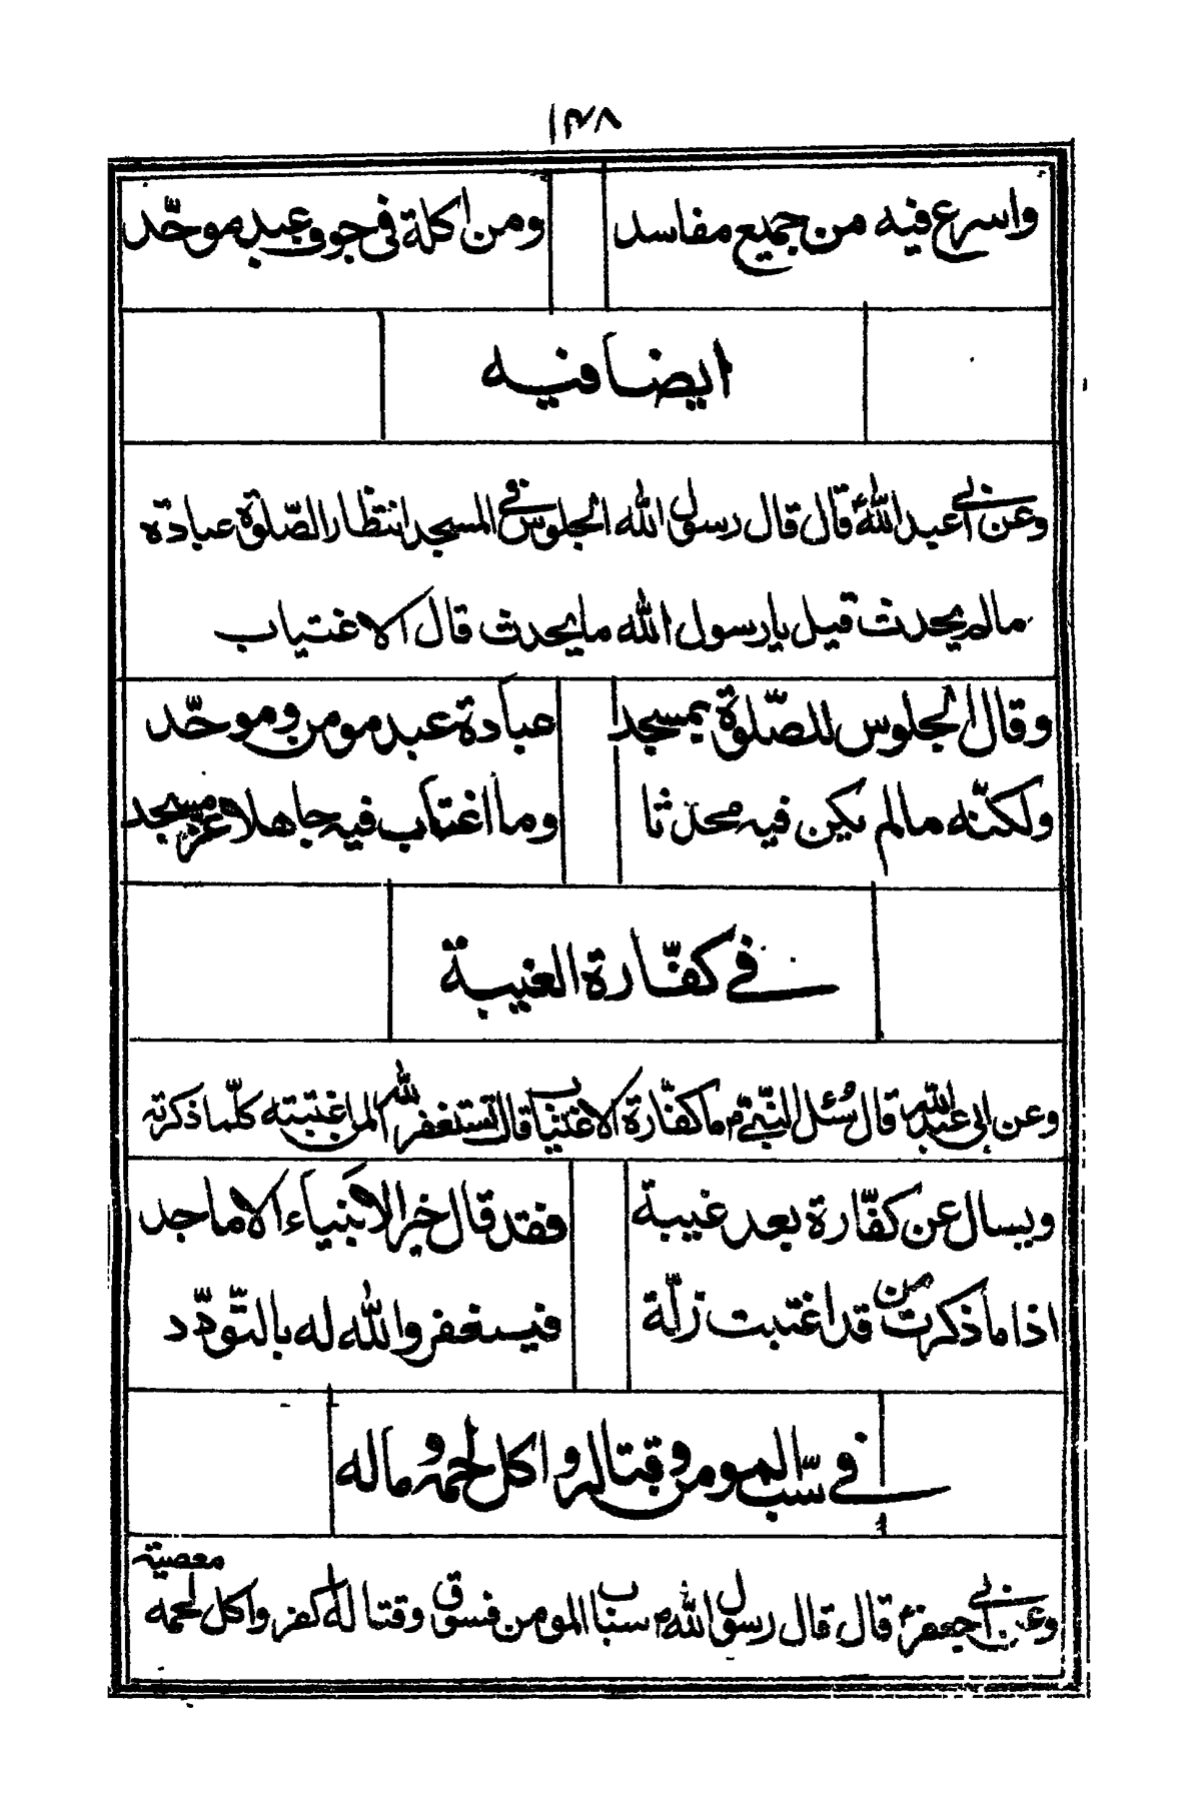 ١٣٨
واسرع فيه من جميع مفاسد ومن اكلة في جوف عبد موحّد
ايضا فيه
وعن ابي عبد الله ع قال قال رسول الله الجلوس في المسجد انتظار الصّلوة عبادة
مالم يحدث قيل يا رسول الله ما يحدث قال الاغتياب
وقال الجلوس للصّلوة بمسجد عبادة عبد مومن وموحّد
ولكنّه مالم يكن فيه محدثا وما اغتاب فيه جاهلا عز مسجد
في كفّارة الغيبة
وعن ابي عبد الله قال سُئل النّبيّ ص ما كفّارة الاغتياب قال تستغفر لله لمن اغتبته كلّما ذكرته
ويسال عن كفّارة بعد غيبة فقد قال خير الانبياء الاماجد
اذا ما ذكرت من قد اغتبت زلّة فيستغفر والله له بالتّودّد
في سبّ المومن وقتاله واكل لحمه وماله
وعن ابي جعفر ع قال قال رسول الله ص سباب المومن فسوق وقتاله كفر واكل لحمه معصية